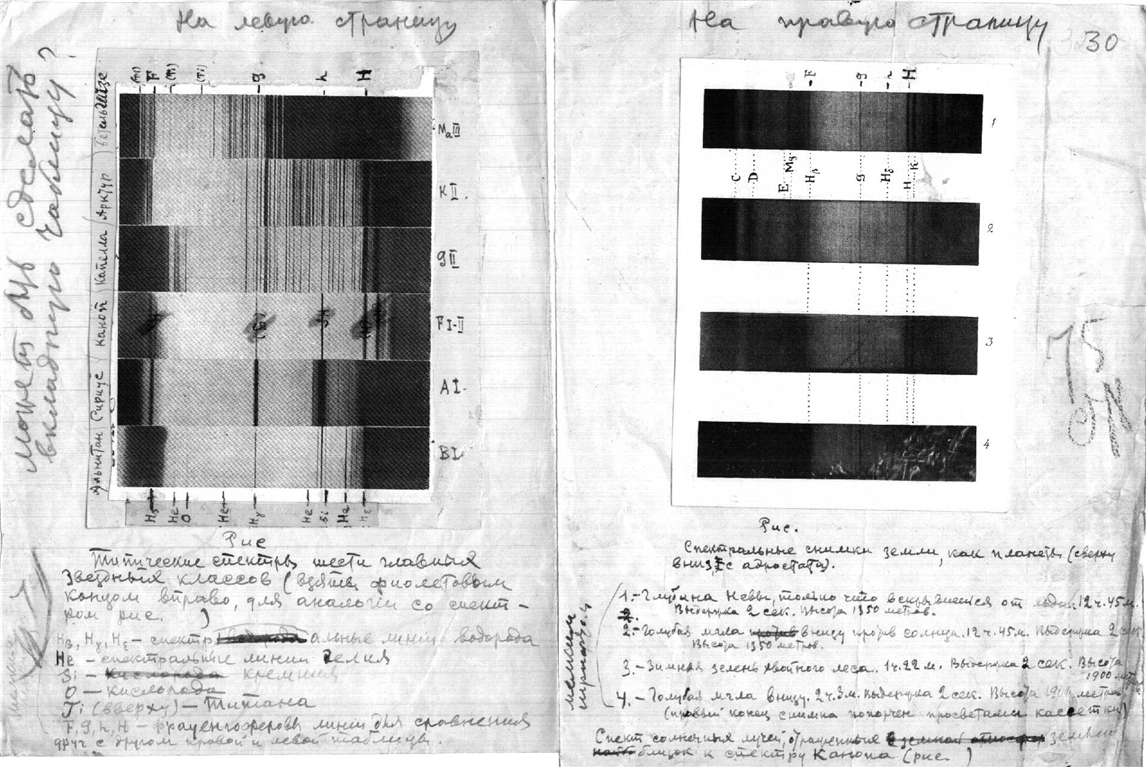 На левую страницу
Может быть сделать
вкладную таблицу?
(Ti) F (Ti) (Ti) g h H
Бетельгейзе
Ma III
Арктур
K II.
Капелла
g II
Каноп
F I-II
Сириус
A I.
Альнитак
B I.
Hβ He O He Hγ He Si He Hε
Рис
Типические спектры шести главных
звездных классов (взяты фиолетовым
концом вправо, для аналогии со спект-
ром рис. )
Hβ, Hγ, Hε – спектральные линии водорода
He – спектральные линии гелия
Si – кремния
O – кислорода
Ti (вверху) – Титана
F, g, h, H – фраунгоферовы линии для сравнения
друг с другом правой и левой таблицы.
На правую страницу
30
F g h H
1
C D E Mg Hβ g Hδ H K
2
3
4
75
Рис.
Спектральные снимки земли, как планеты (сверху
вниз с аэростата).
1.– Глубина Невы, только что вскрывшейся от льда. 12 ч. 45 м.
Выдержка 2 сек. Высота 1350 метров.
2.– Голубая мгла внизу против солнца. 12 ч. 45 м. Выдержка 2 сек
Высота 1350 метров.
3.– Зимняя зелень хвойного леса. 1 ч. 22 м. Выдержка 2 сек. Высота
1900 метр.
4.– Голубая мгла внизу. 2 ч. 3 м. Выдержка 2 сек. Высота метров
(правый конец снимка попорчен просветами кассетки)
мелким
шрифтом
Спект солнечных лучей, отраженные землею
близок к спектру Канопа (рис. )